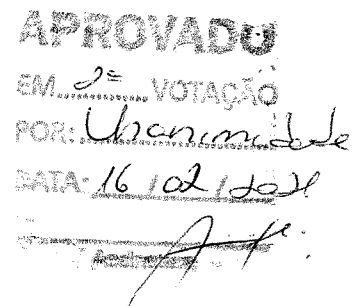 APROVADO
EM 2ª VOTAÇÃO
POR: Unanimidade
DATA: 16 / 02 / 2021